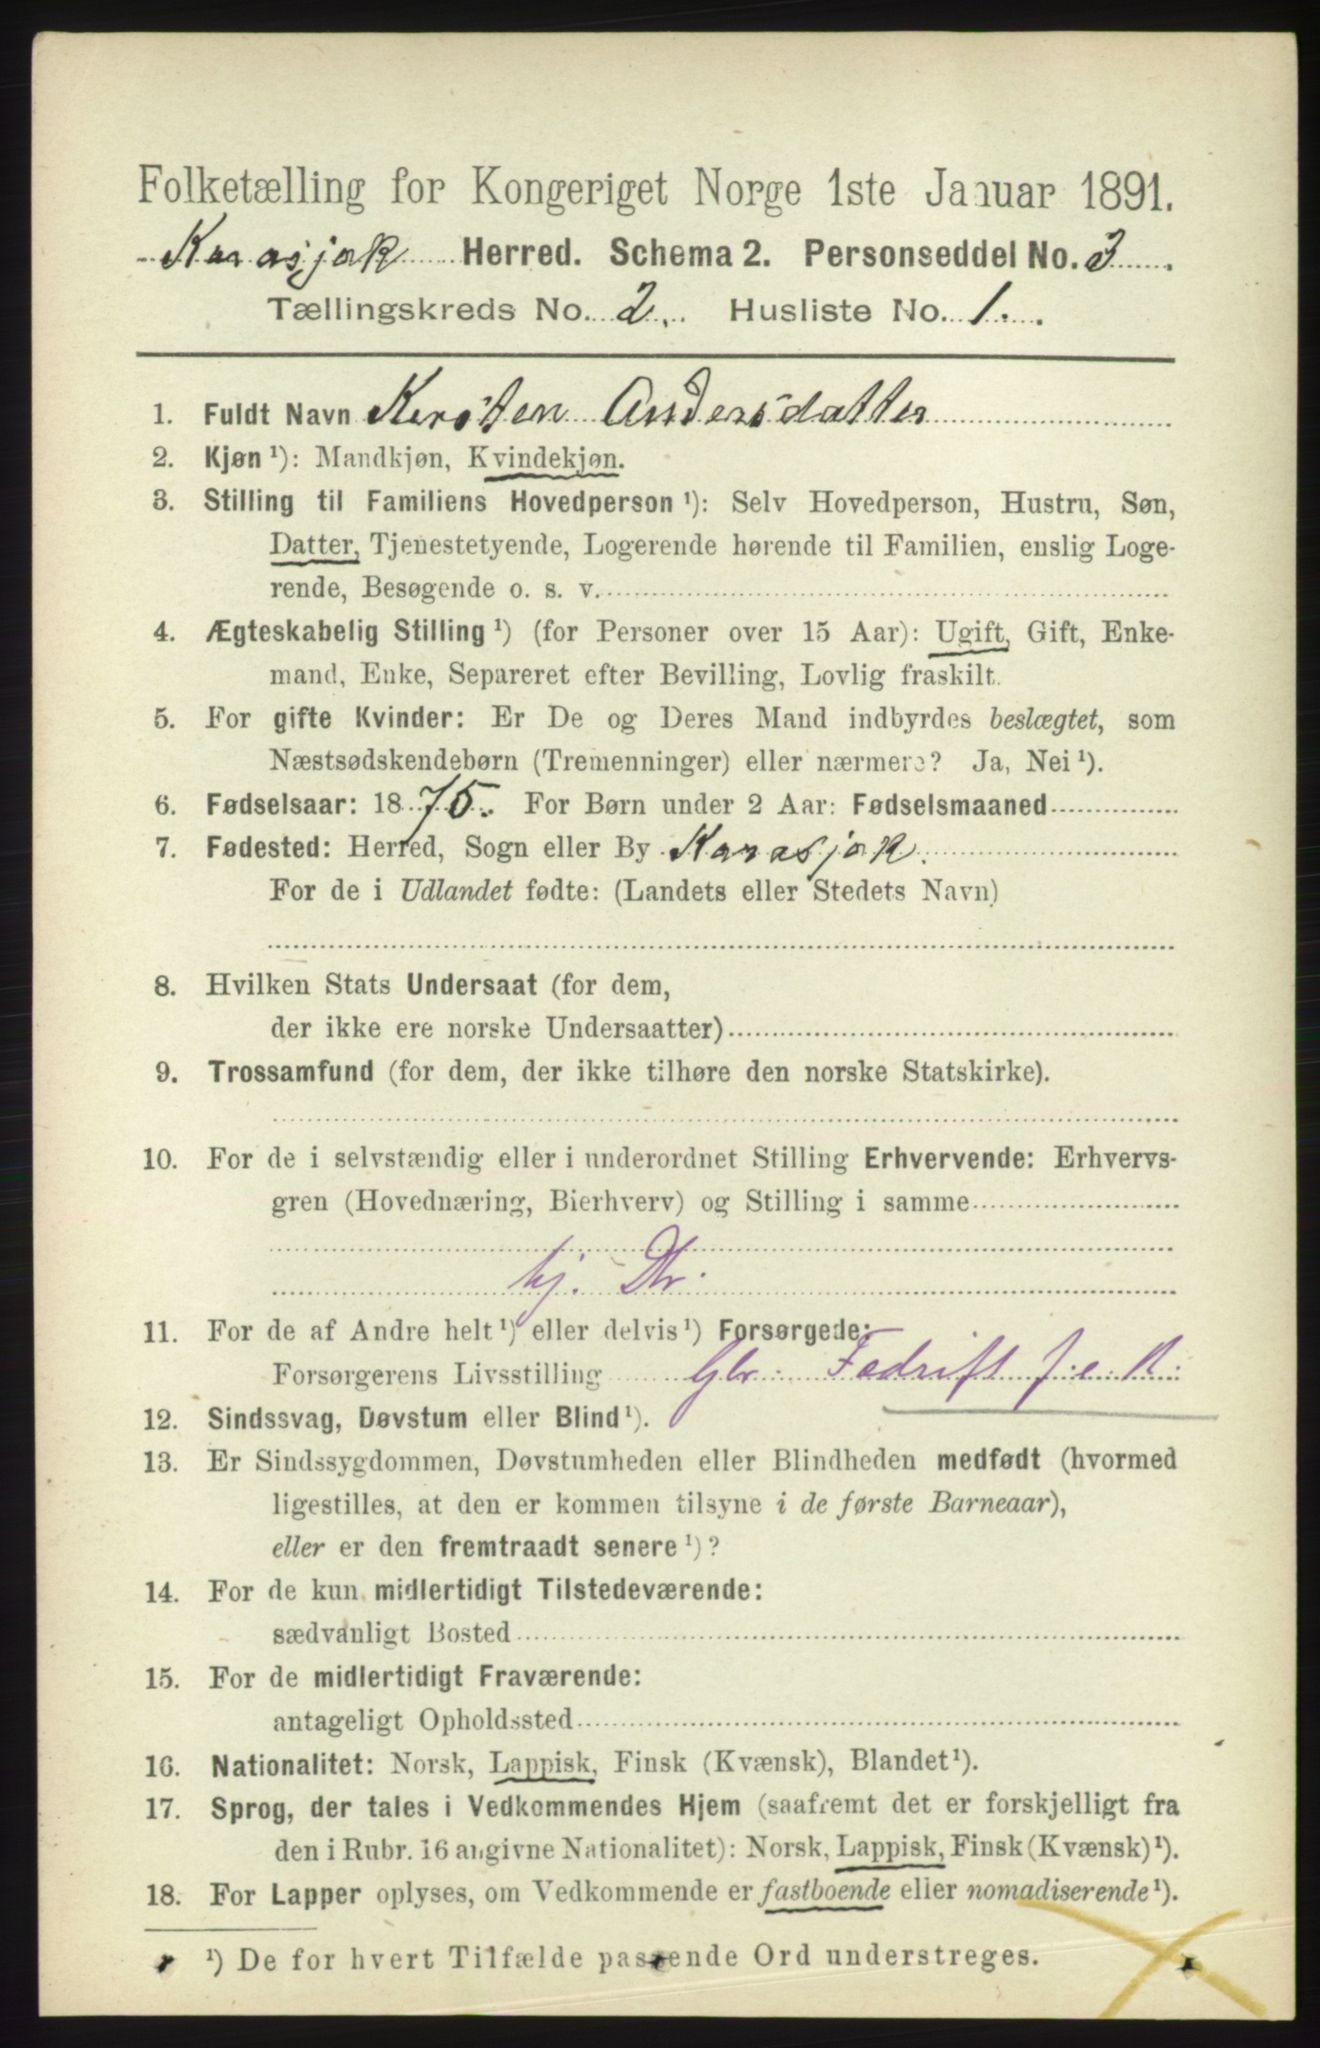 Folketælling for Kongeriget Norge 1ste Januar 1891.
Karasjok Herred. Schema 2. Personseddel No. 3
Tællingskreds No. 2. Husliste No. 1.
1. Fuldt Navn Kersten Andersdatter
2. Kjøn ¹): Mandkjøn, Kvindekjøn.
3. Stilling til Familiens Hovedperson ¹): Selv Hovedperson, Hustru, Søn,
Datter, Tjenestetyende, Logerende hørende til Familien, enslig Loge-
rende, Besøgende o. s. v.
4. Ægteskabelig Stilling ¹) (for Personer over 15 Aar): Ugift, Gift, Enke-
mand, Enke, Separeret efter Bevilling, Lovlig fraskilt.
5. For gifte Kvinder: Er De og Deres Mand indbyrdes beslægtet, som
Næstsødskendebørn (Tremenninger) eller nærmere? Ja, Nei ¹).
6. Fødselsaar: 1875. For Børn under 2 Aar: Fødselsmaaned
7. Fødested: Herred, Sogn eller By Karasjok.
For de i Udlandet fødte: (Landets eller Stedets Navn)
8. Hvilken Stats Undersaat (for dem,
der ikke ere norske Undersaatter)
9. Trossamfund (for dem, der ikke tilhøre den norske Statskirke).
10. For de i selvstændig eller i underordnet Stilling Erhvervende: Erhvervs-
gren (Hovednæring, Bierhverv) og Stilling i samme
hj. Dtr.
11. For de af Andre helt ¹) eller delvis ¹) Forsørgede:
Forsørgerens Livsstilling Gbr. Fædrift f. e. R.
12. Sindssvag, Døvstum eller Blind ¹).
13. Er Sindssygdommen, Døvstumheden eller Blindheden medfødt (hvormed
ligestilles, at den er kommen tilsyne i de første Barneaar),
eller er den fremtraadt senere ¹)?
14. For de kun midlertidigt Tilstedeværende:
sædvanligt Bosted
15. For de midlertidigt Fraværende:
antageligt Opholdssted
16. Nationalitet: Norsk, Lappisk, Finsk (Kvænsk), Blandet ¹).
17. Sprog, der tales i Vedkommendes Hjem (saafremt det er forskjelligt fra
den i Rubr. 16 angivne Nationalitet): Norsk, Lappisk, Finsk (Kvænsk) ¹).
18. For Lapper oplyses, om Vedkommende er fastboende eller nomadiserende ¹).
¹) De for hvert Tilfælde passende Ord understreges.